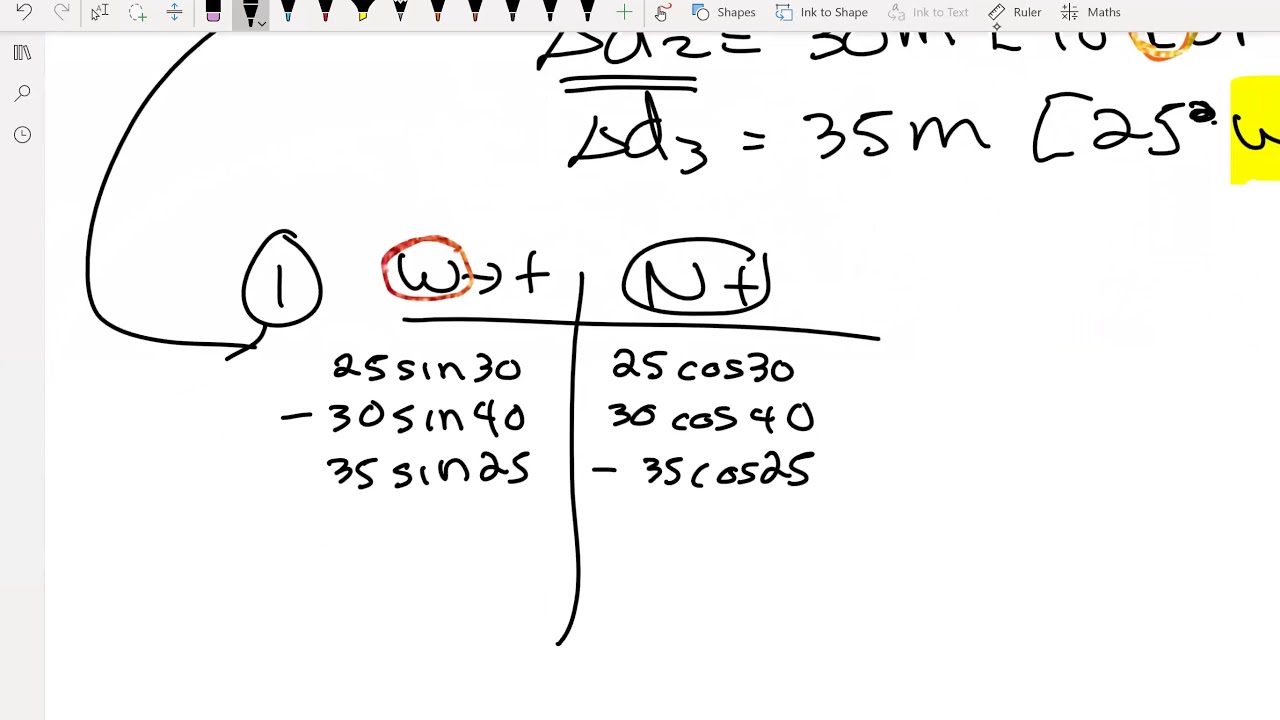 Shapes Ink to Shape Ink to Text Ruler Maths
Δd2 = 30m [
Δd3 = 35m [25°
1 W→+ N+
25 sin30 25 cos30
- 30 sin 40 30 cos 40
35 sin25 - 35 cos25